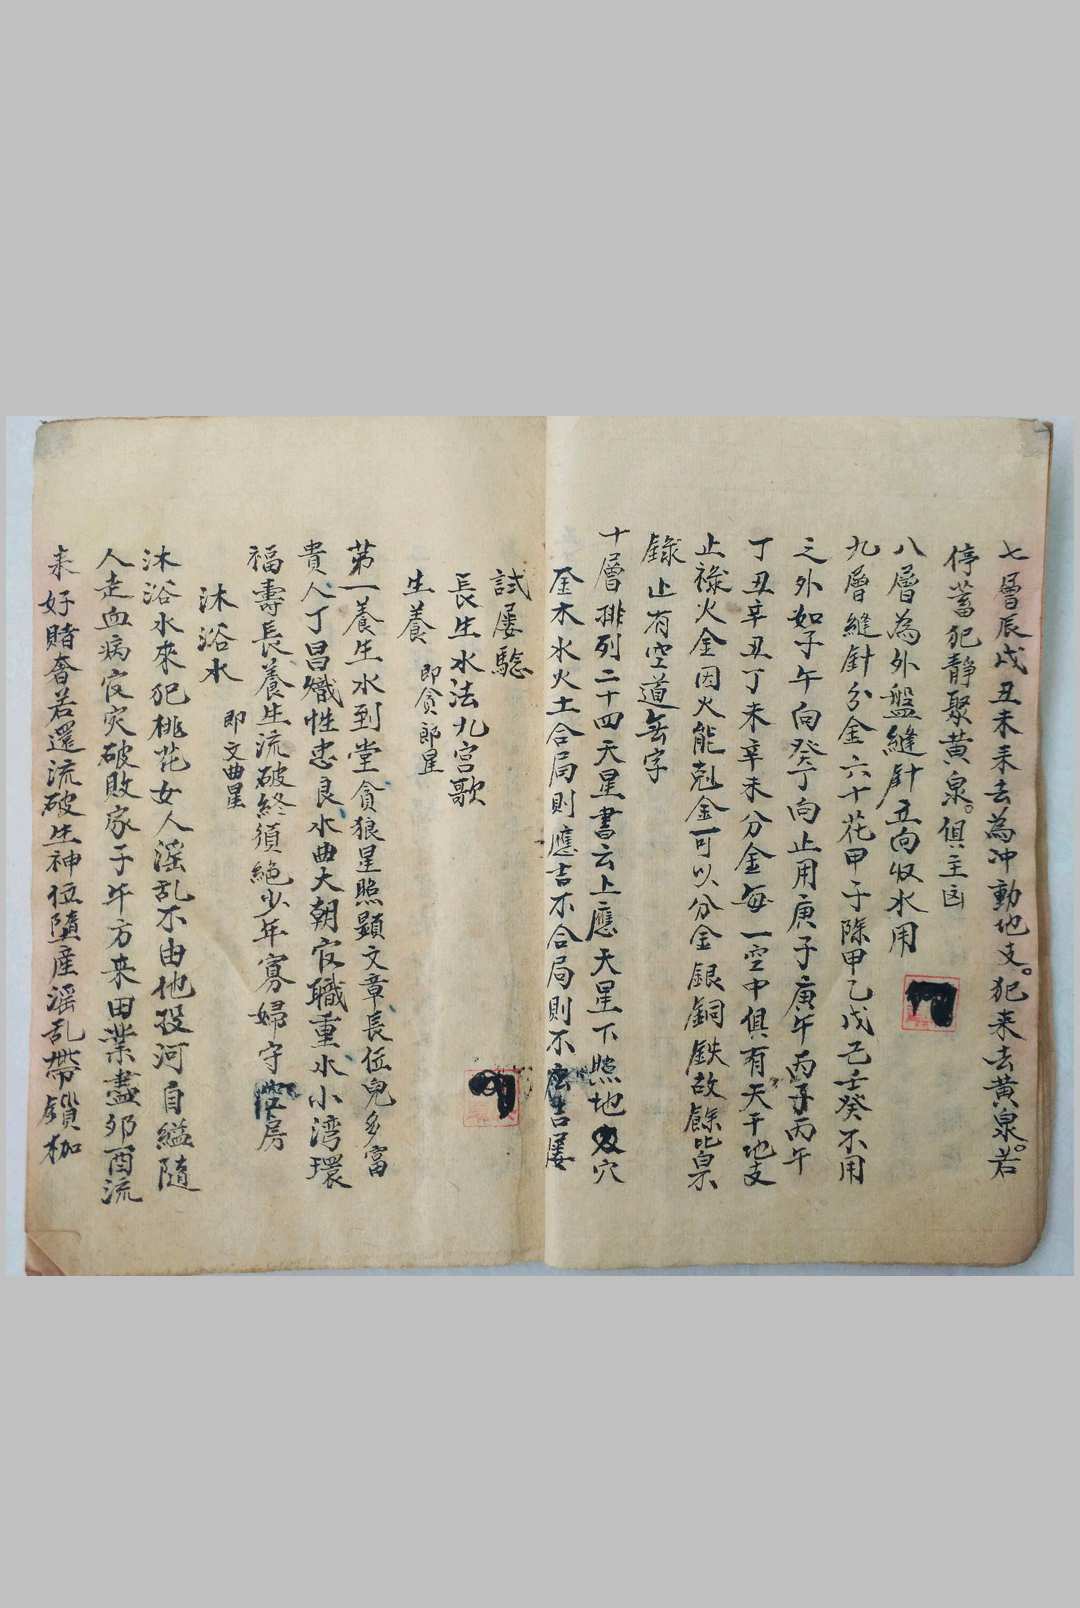 七層辰戌丑未来去為冲動地支。犯来去黄泉。若
停蓄犯靜聚黄泉。俱主凶
八層為外盤縫針立向收水用
九層縫針分金六十花甲子除甲乙戊己壬癸不用
之外如子午向癸丁向止用庚子庚午丙子丙午
丁丑辛丑丁未辛未分金每一空中俱有天干地支
止祿火金因火能剋金可以分金銀銅鉄故餘皆不
錄止有空道無字
十層排列二十四天星書云上應天星下照地穴
金木水火土合局則應吉不合局則不吉屡
試屡騐
長生水法九宫歌
生養 即貪郎星
第一養生水到堂貪狼星照顕文章長位兒多富
貴人丁昌熾性忠良水曲大朝官職重水小湾環
福壽長養生流破終須絶少年寡婦守空房
沐浴水 即文曲星
沐浴水來犯桃花女人滛乱不由他投河自縊隨
人走血病官灾破敗家子午方来田業盡邜酉流
来好賭奢若還流破生神位墮産滛乱帶鎖枷